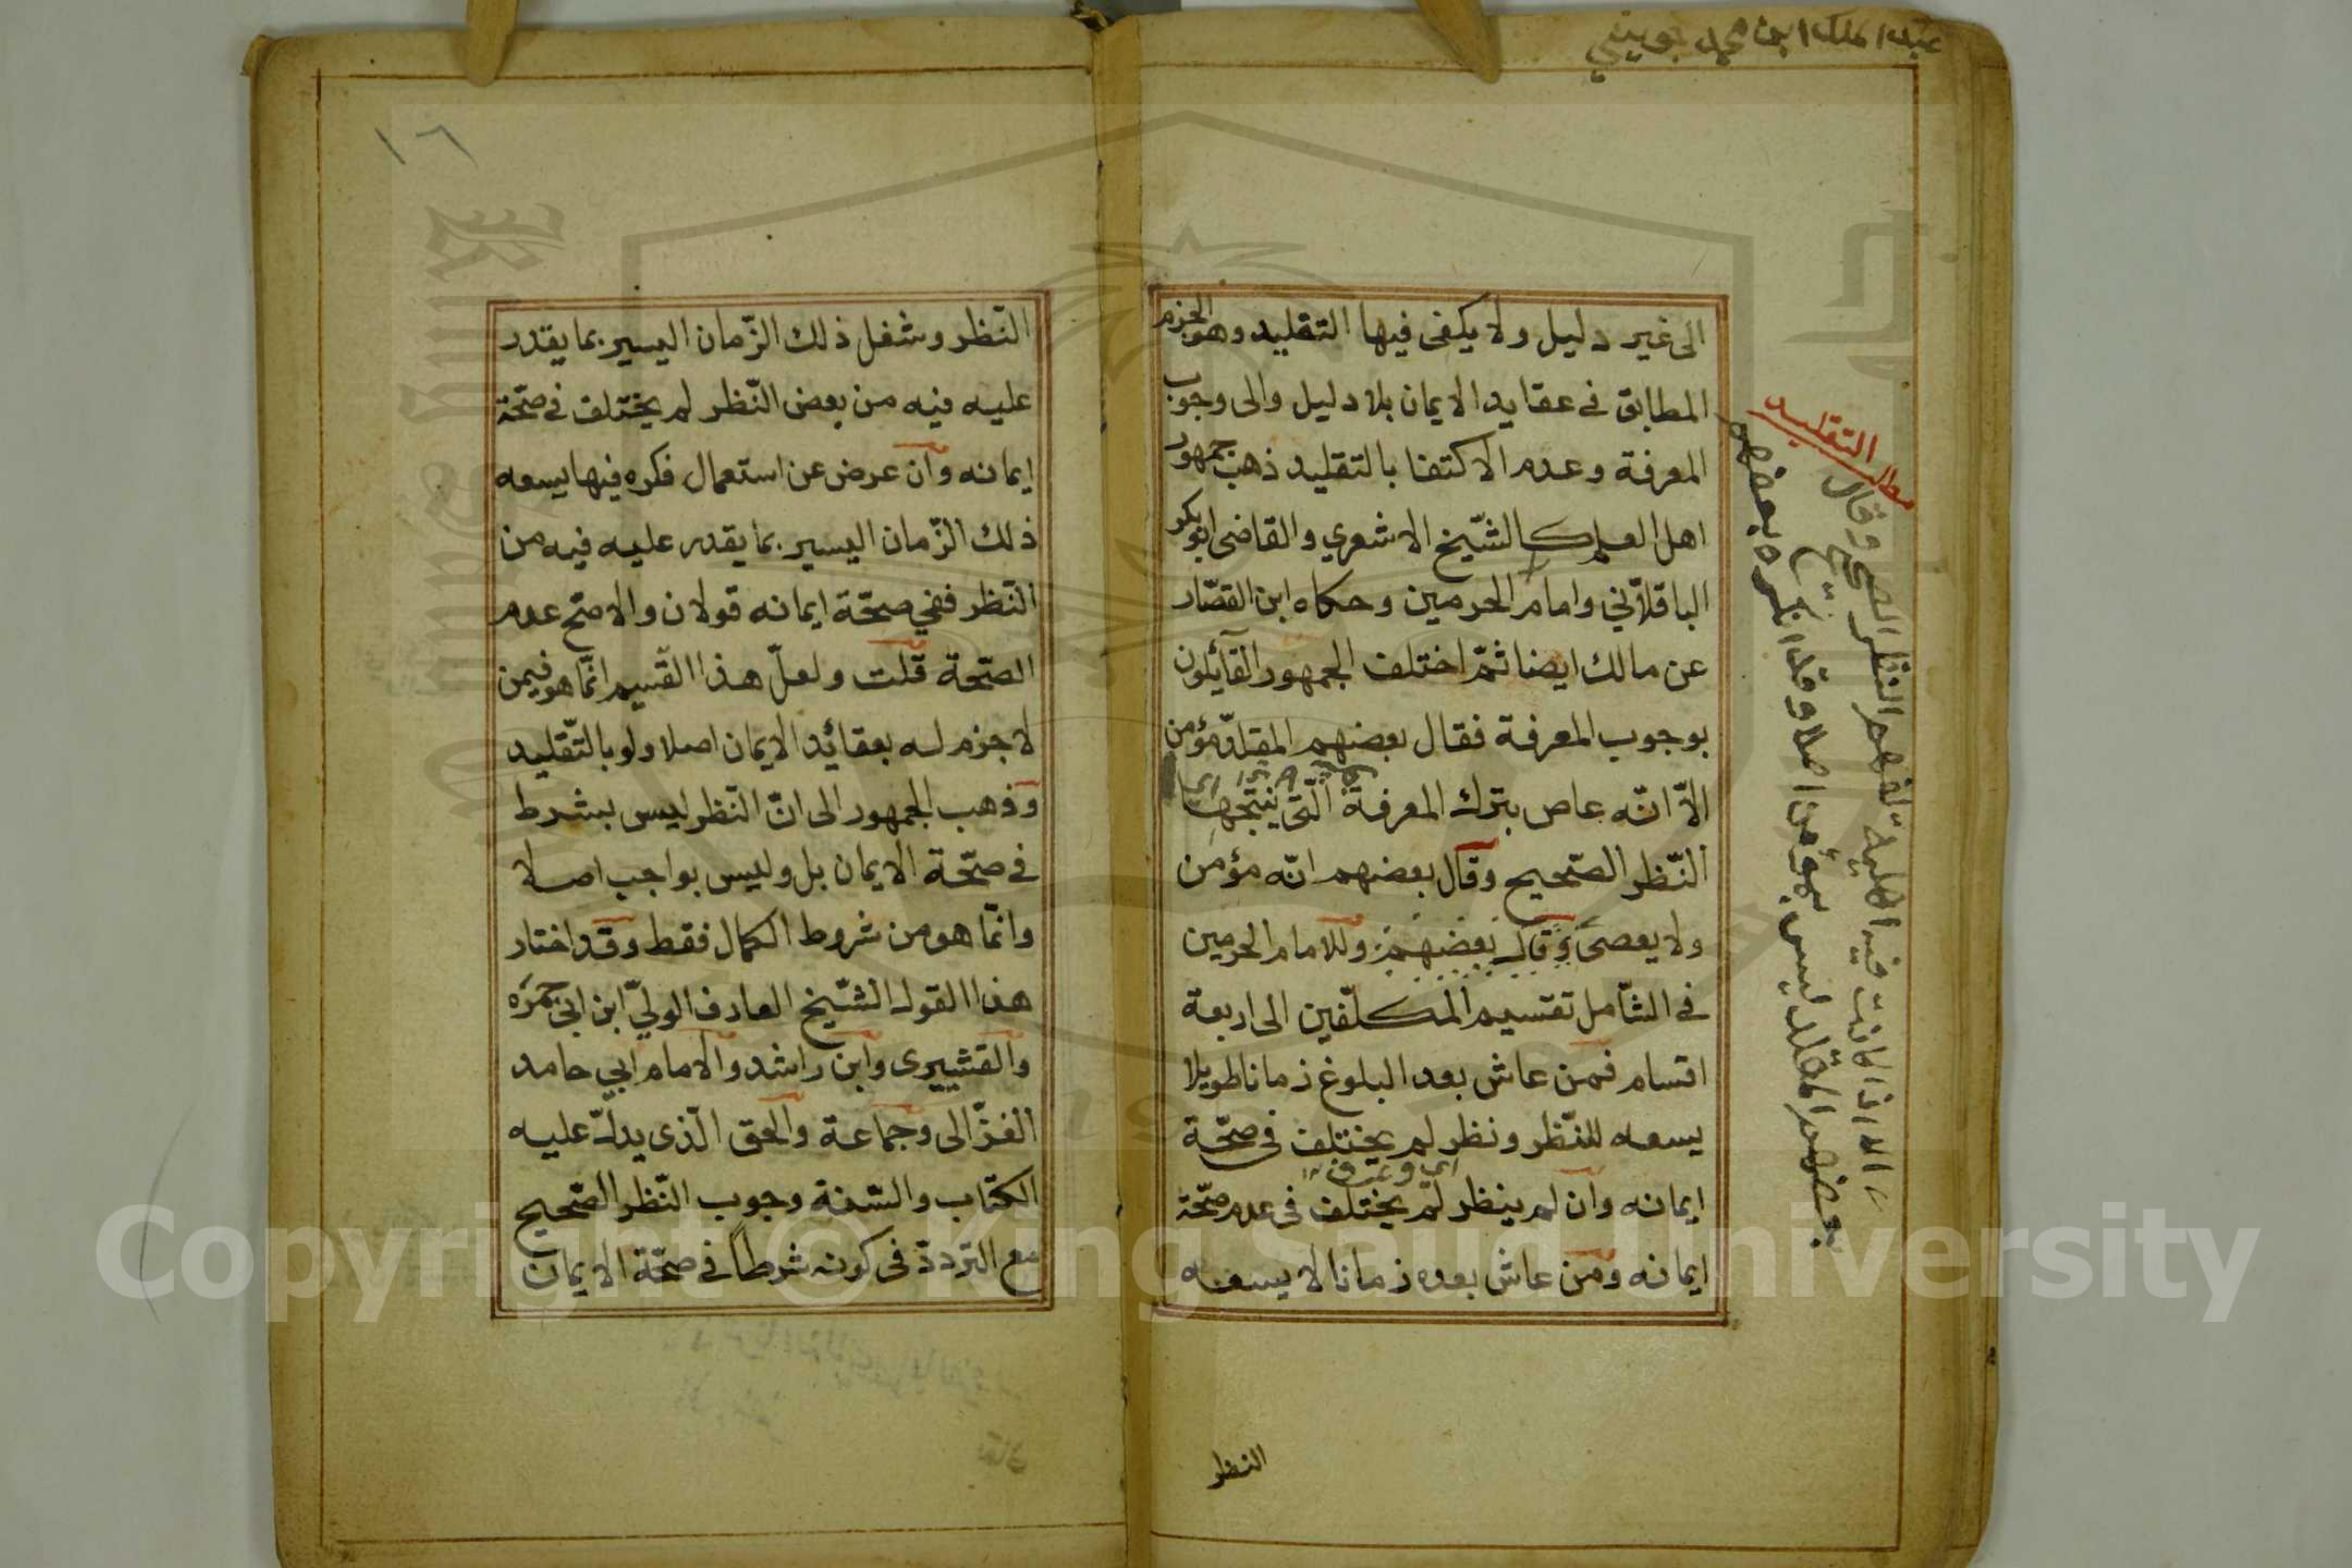 عبد الملك ابن محمد جويني
الى غير دليل ولا يكفى فيها التقليد وهو الجزم
المطابق في عقايد الايمان بلا دليل والى وجوب
المعرفة وعدم الاكتفا بالتقليد ذهب جمهور
اهل العلم كالشّيخ الاشعري والقاضى ابوبكر
الباقلاّني وامام الحرمين وحكاه ابن القصّار
عن مالك ايضا ثمّ اختلف الجمهور القآئلون
بوجوب المعرفة فقال بعضهم المقلّد مؤمن
الاّ انّه عاص بترك المعرفة الّتى ينتجها
النّظر الصّحيح وقال بعضهم انّه مؤمن
ولا يعصى وقال بعضهم وللامام الحرمين
في الشّامل تقسيم المكلّفين الى اربعة
اقسام فمن عاش بعد البلوغ زمانا طويلا
يسعه للنّظر ونظر لم يختلف في صحّة
ايمانه وان لم ينظر لم يختلف فى عدم صحّة
ايمانه ومن عاش بعده زمانا لا يسعه
النظر
مطلب التقليد
الا اذا كانت فيه اهلية لفهم النظر الصحيح وقال
بعضهم المقلد ليس بمؤمن اصلا وقد انكره بعضهم
١٦
النّظر وشغل ذلك الزّمان اليسير بما يقدر
عليه فيه من بعض النّظر لم يختلف في صحّة
ايمانه وان عرض عن استعمال فكره فيها يسعه
ذلك الزّمان اليسير بما يقدر عليه فيه من
النّظر ففي صحّة ايمانه قولان والاصّح عدم
الصّحة قلت ولعلّ هذا القسيم انّما هو فيمن
لا جزم له بعقائد الايمان اصلا ولو بالتّقليد
وذهب الجمهور الى انّ النّظر ليس بشرط
في صحّة الايمان بل وليس بواجب اصلا
وانّما هو من شروط الكمال فقط وقد اختار
هذا القول الشّيخ العارف الوليّ ابن ابى جمره
والقشييرى وابن راشد والامام ابي حامد
الغزّالى وجماعة والحق الّذى يدلّ عليه
الكتاب والسّنة وجوب النّظر الصّحيح
مع التردّد فى كونه شرطاً في صحّة الايمان
Copyright © King Saud University